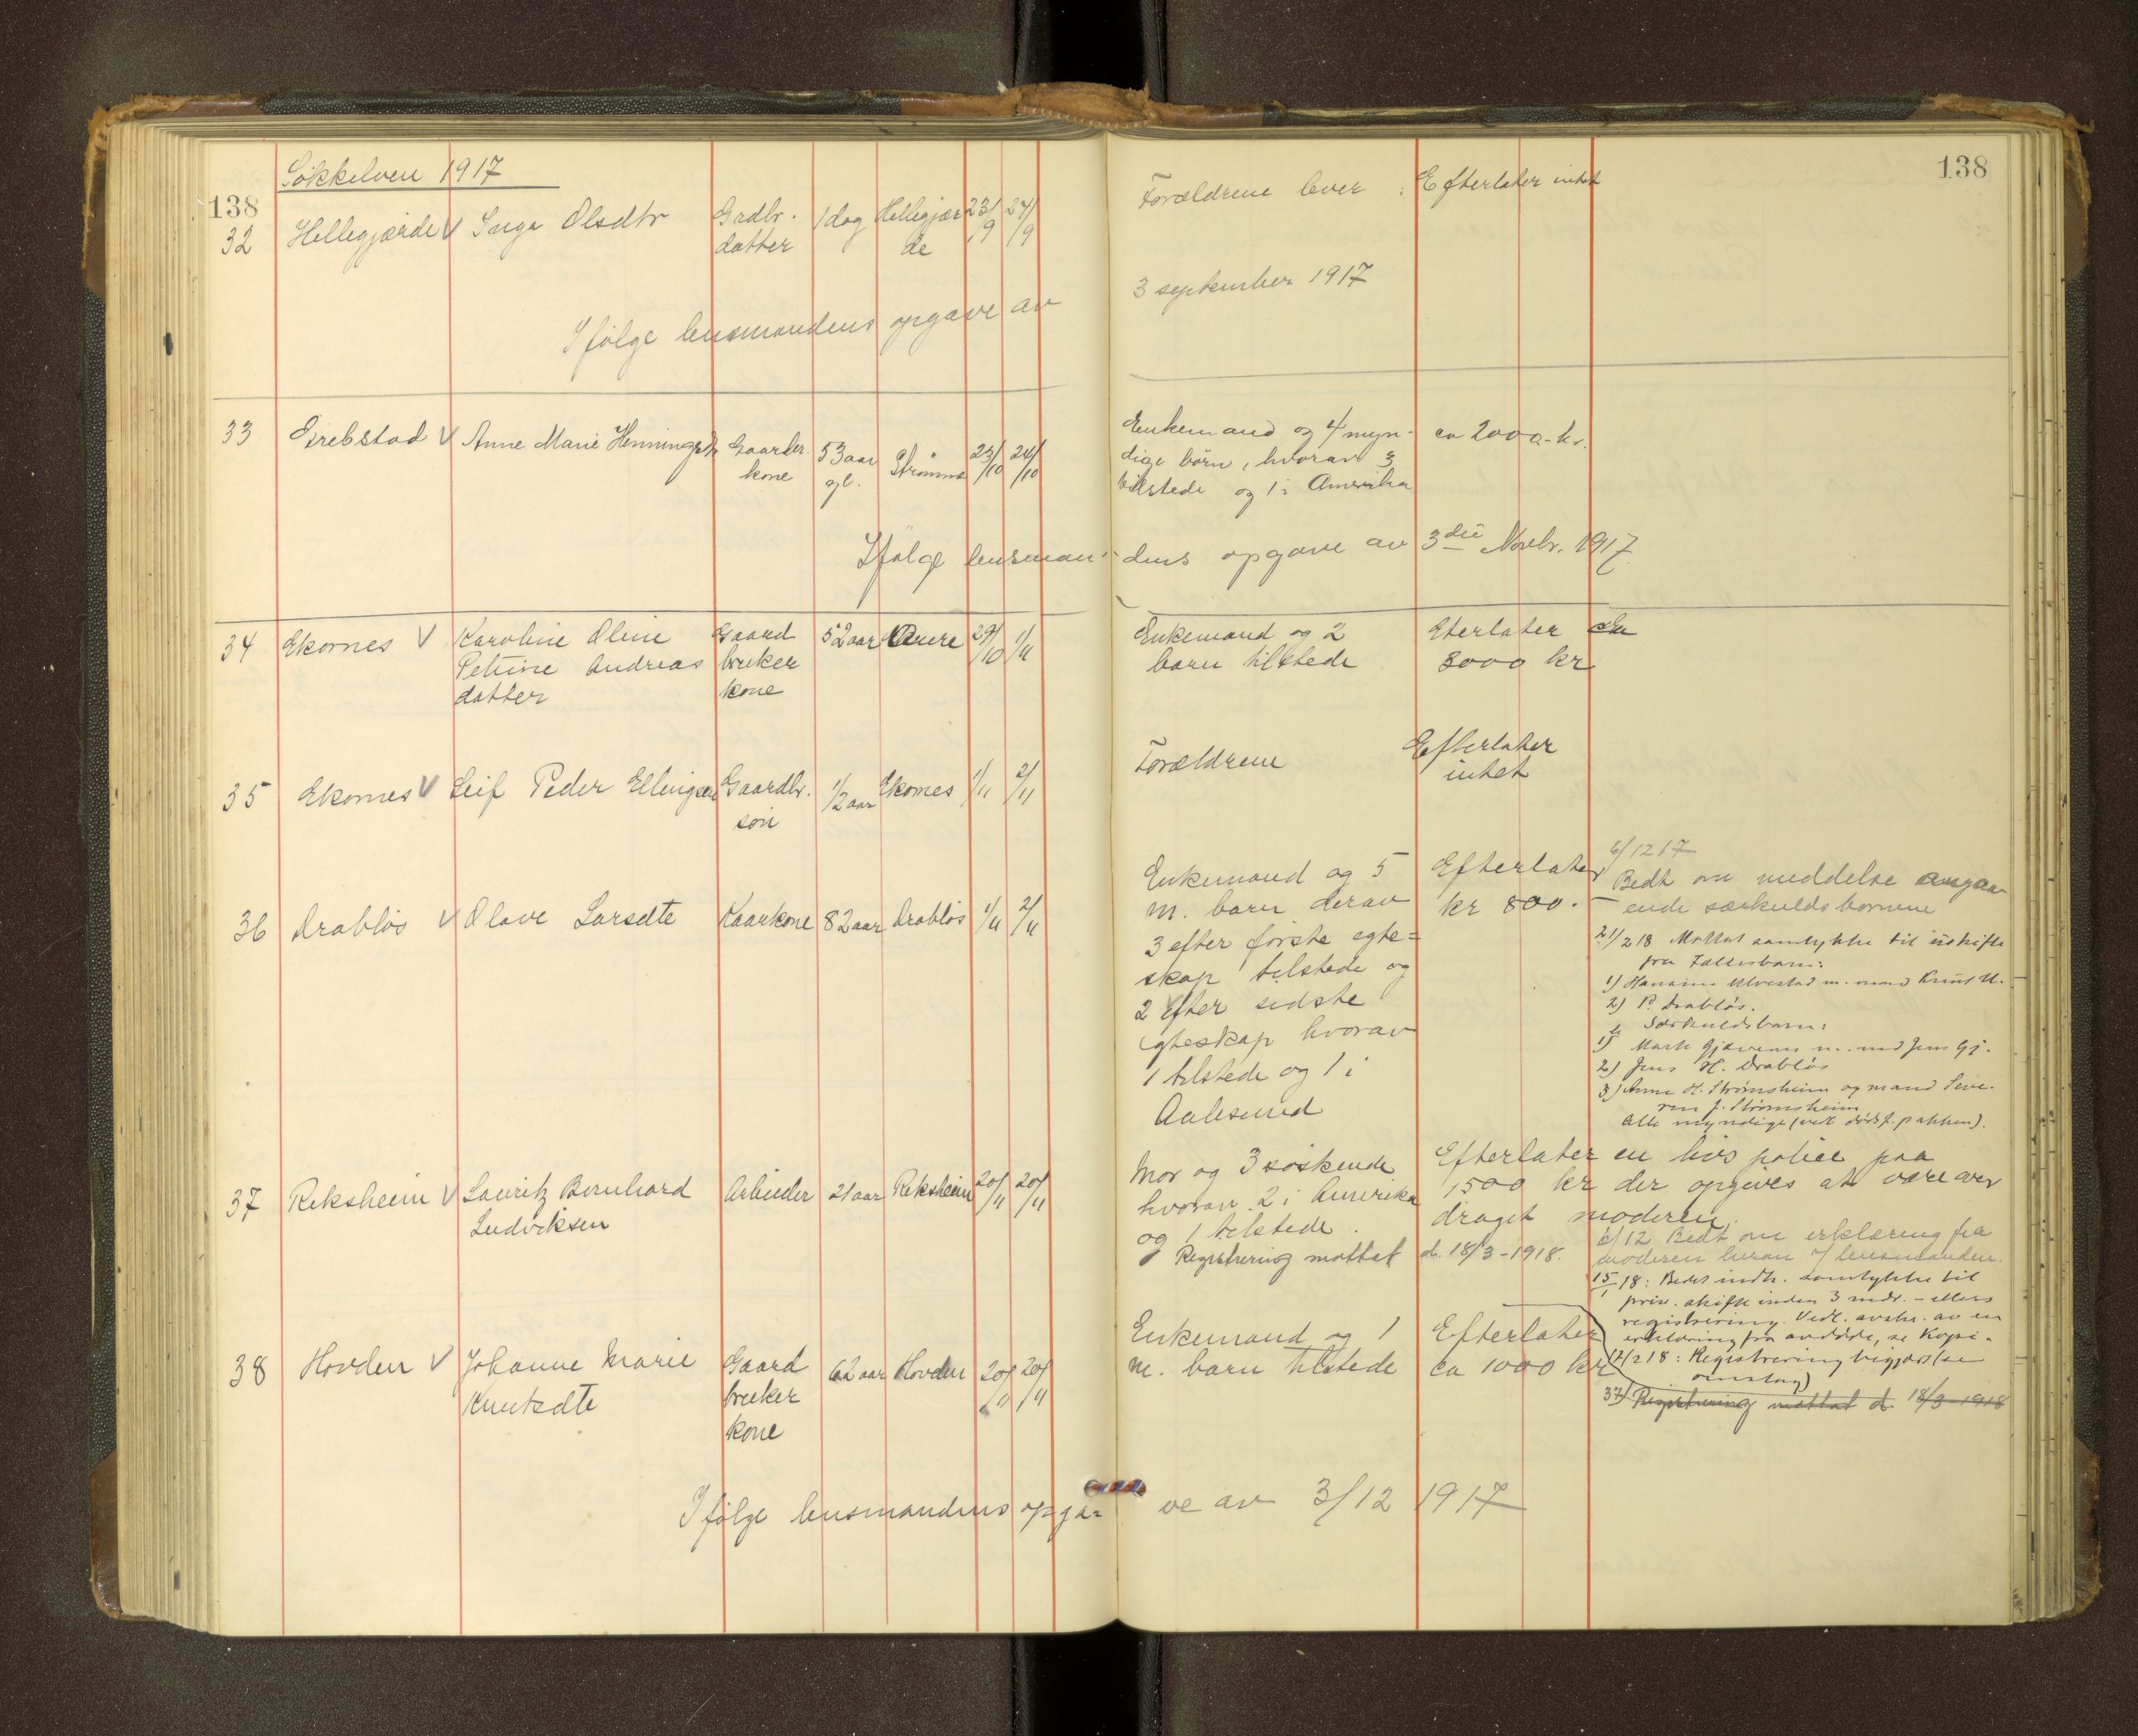 Søkkelven 1917
138
138
32 Hellegjærde V Inga Olsdtr Grdbr. 1 dag Hellegjær 23/9 24/9 Forældrene lever : Efterlater intet
datter de
Ifølge lensmandens opgave av 3 september 1917
33 Grebstad V Anne Marie Henningsdtr Gaardbr. 53 aar Strømme 23/10 24/10 Enkemand og 4 myn- ca 2000 - kr.
kone gl. dige børn, hvorav 3
tilstede og 1 i Amerika
Ifølge lensman- dens opgave av 3die Novbr. 1917
34 Ekornes V Karoline Oline Gaard 52 aar Aure 29/10 1/11 Enkemand og 2 Eterlater
Petrine Andreas bruker barn tilstede 8000 kr
datter kone
35 Ekornes V Leif Peder Ellingsen Gaardbr. 1/2 aar Ekornes 1/11 2/11 Forældrene Efterlater
søn intet
36 Drabløs V Olave Larsdte Kaarkone 82 aar Drabløs 1/11 2/11 Enkemand og 5 Efterlater
m. barn derav kr 800.-
3 efter første egte=
skap tilstede og
2 efter sidste
egteskap hvorav
1 tilstede og 1 i
Aalesund
6/12 17
Bedt om meddelse angaa
ende særkuldsbørnene
21/2 18 Mottat samtykke til utskifte
fra Fællesbarn:
1) Hanna Ulvestad m. mand Knut U.
2) P. Drabløs.
Særkuldsbarn:
1) Marte Gjævenes m. mand Jens Gj.
2) Jens H. Drabløs
3) Anne H. Strømsheim og mand Seve-
ren J. Strømsheim
Alle myndige (vedl. dødsf. pakken).
37 Reksheim V Lauritz Bernhard Arbeider 21 aar Reksheim 20/11 20/11 Mor og 3 søskende Efterlater en livs police paa
Ludviksen hvorav 2 i Amerika 1500 kr der opgives at være over
og 1 tilstede. draget moderen.
Registrering mottat d. 18/3-1918.
6/12 Bedt om erklæring fra
moderen herom af lensmanden.
15/1 18: Bedes indh. samtykke til
priv. skifte inden 3 mdr. - ellers
registrering. Vedl. avskr. av en
erklæring fra avdøde, se Kopi-
12/2 18: Registrering begjæres (se
omslag)
37) Registrering mottat d. 18/3-1918
38 Hovden V Johanne Marie Gaard 62 aar Hovden 20/11 20/11 Enkemand og 1 Efterlater
Knutsdte bruker m. barn tilstede ca 1000 kr
kone
Ifølge lensmandens opga= ve av 3/12 1917